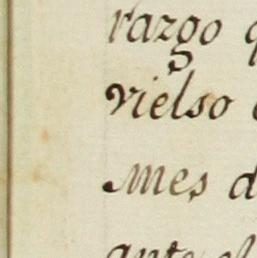 razgo
vielso
Mes d
ante el